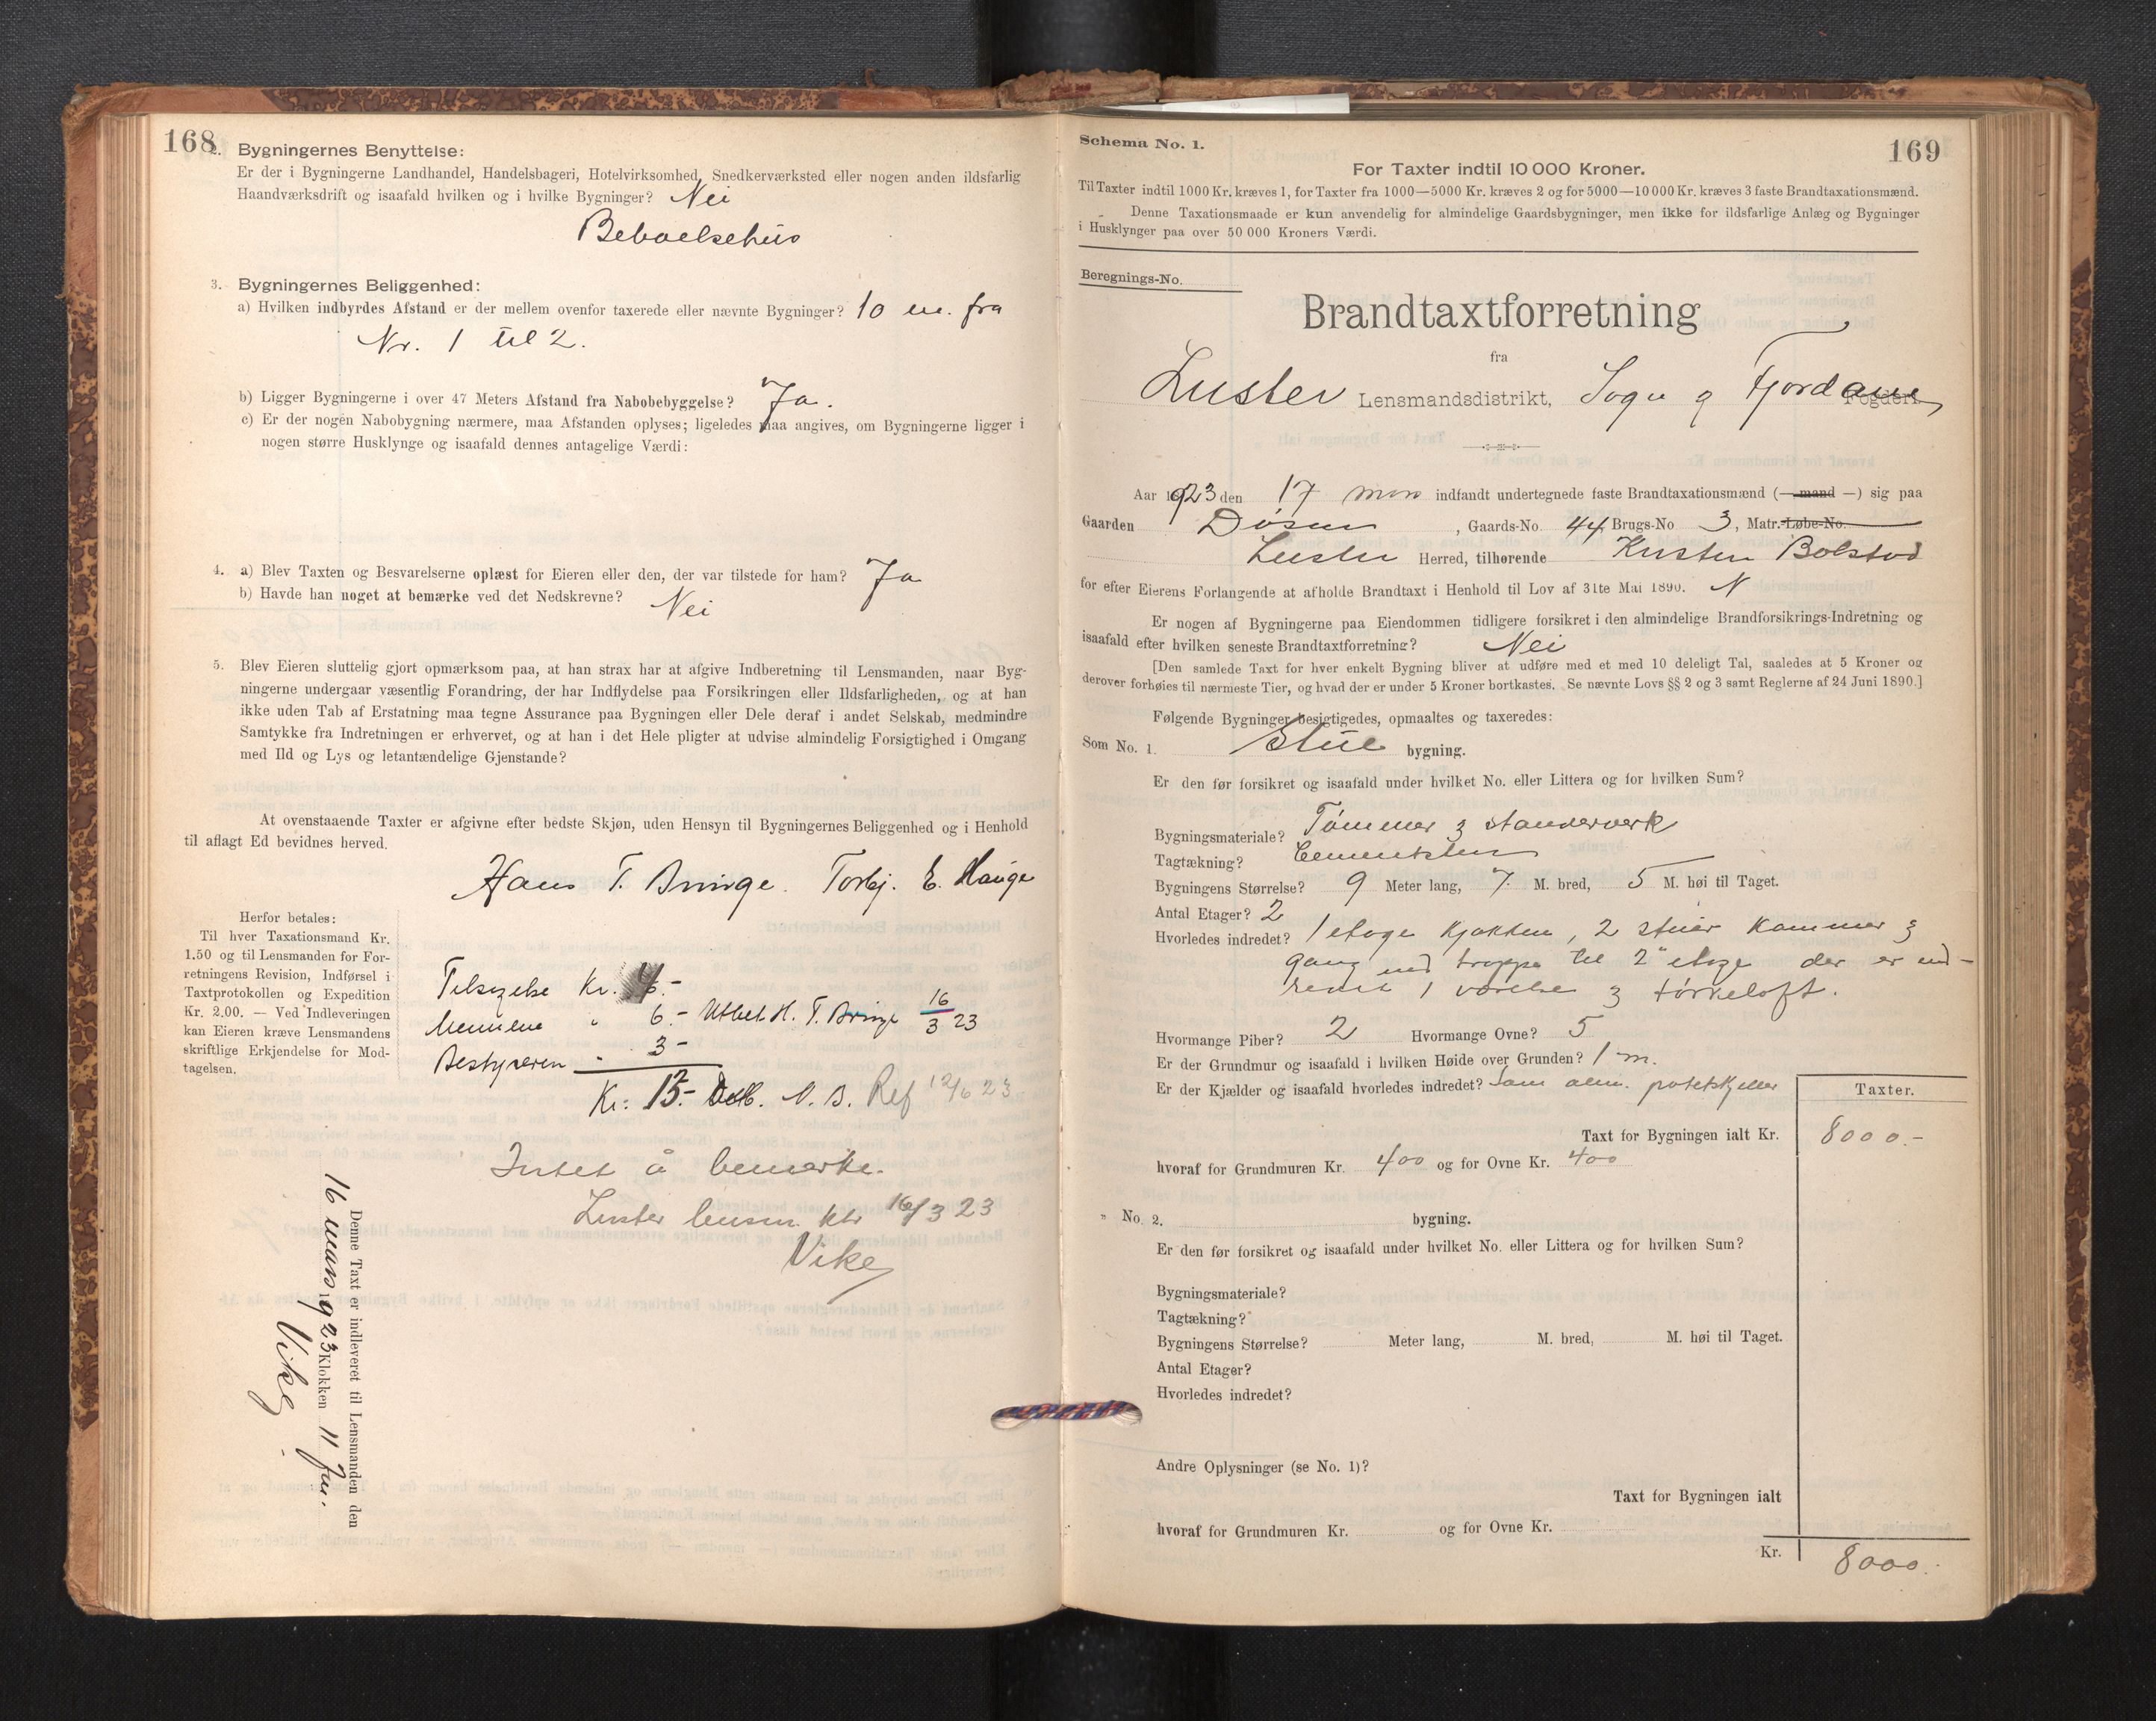 168
2. Bygningernes Benyttelse:
Er der i Bygningerne Landhandel, Handelsbageri, Hotelvirksomhed, Snedkerværksted eller nogen anden ildsfarlig
Haandværksdrift og isaafald hvilken og i hvilke Bygninger? Nei
Beboelsehus
3. Bygningernes Beliggenhed:
a) Hvilken indbyrdes Afstand er der mellem ovenfor taxerede eller nævnte Bygninger? 10 m. fra
Nr. 1 til 2.
b) Ligger Bygningerne i over 47 Meters Afstand fra Nabobebyggelse? Ja.
c) Er der nogen Nabobygning nærmere, maa Afstanden oplyses; ligeledes maa angives, om Bygningerne ligger i
nogen større Husklynge og isaafald dennes antagelige Værdi:
4. a) Blev Taxten og Besvarelserne oplæst for Eieren eller den, der var tilstede for ham? Ja
b) Havde han noget at bemærke ved det Nedskrevne? Nei
5. Blev Eieren sluttelig gjort opmærksom paa, at han strax har at afgive Indberetning til Lensmanden, naar Byg-
ningerne undergaar væsentlig Forandring, der har Indflydelse paa Forsikringen eller Ildsfarligheden, og at han
ikke uden Tab af Erstatning maa tegne Assurance paa Bygningen eller Dele deraf i andet Selskab, medmindre
Samtykke fra Indretningen er erhvervet, og at han i det Hele pligter at udvise almindelig Forsigtighed i Omgang
med Ild og Lys og letantændelige Gjenstande?
At ovenstaaende Taxter er afgivne efter bedste Skjøn, uden Hensyn til Bygningernes Beliggenhed og i Henhold
til aflagt Ed bevidnes herved.
Hans T. Bringe. Torbj. E. Hauge
Herfor betales:
Til hver Taxationsmand Kr.
1.50 og til Lensmanden for For-
retningens Revision, Indførsel i
Taxtprotokollen og Expedition
Kr. 2.00. — Ved Indleveringen
kan Eieren kræve Lensmandens
skriftlige Erkjendelse for Mod-
tagelsen.
Tilsigelse Kr. 6.-
Mennene " 6.- Utbet. H. T. Bringe 16/3 23
Bestyreren - 3-
Kr: 15.- N. B. Ref 12/6 23
Intet å bemerke.
Luster lensm. ktr 16/3 23
Vike
Denne Taxt er indleveret til Lensmanden den
16 mars 1923 Klokken 11 Fm.
Vike
Schema No. 1.
169
For Taxter indtil 10 000 Kroner.
Til Taxter indtil 1000 Kr. kræves 1, for Taxter fra 1000—5000 Kr. kræves 2 og for 5000—10 000 Kr. kræves 3 faste Brandtaxationsmænd.
Denne Taxationsmaade er kun anvendelig for almindelige Gaardsbygninger, men ikke for ildsfarlige Anlæg og Bygninger
i Husklynger paa over 50 000 Kroners Værdi.
Beregnings-No.
Brandtaxtforretning
fra
Luster Lensmandsdistrikt, Sogn og Fjordane Fogderi.
Aar 1923 den 17 mars indfandt undertegnede faste Brandtaxationsmænd (— mand —) sig paa
Gaarden Døsen, Gaards-No. 44 Brugs-No 3, Matr.-Løbe-No.
Luster Herred, tilhørende Kristen Bolstad
for efter Eierens Forlangende at afholde Brandtaxt i Henhold til Lov af 31te Mai 1890. N
Er nogen af Bygningerne paa Eiendommen tidligere forsikret i den almindelige Brandforsikrings-Indretning og
isaafald efter hvilken seneste Brandtaxtforretning? Nei
[Den samlede Taxt for hver enkelt Bygning bliver at udføre med et med 10 deleligt Tal, saaledes at 5 Kroner og
derover forhøies til nærmeste Tier, og hvad der er under 5 Kroner bortkastes. Se nævnte Lovs §§ 2 og 3 samt Reglerne af 24 Juni 1890.]
Følgende Bygninger besigtigedes, opmaaltes og taxeredes:
Som No. 1. Stue bygning.
Er den før forsikret og isaafald under hvilket No. eller Littera og for hvilken Sum?
Bygningsmateriale? Tømmer & standerverk
Tagtækning? Cementsten
Bygningens Størrelse? 9 Meter lang, 7 M. bred, 5 M. høi til Taget.
Antal Etager? 2
Hvorledes indredet? 1 etage kjøkken, 2 stuer kammer &
gang med trappe til 2" etage der er ind-
redet 1 værelse & tørkeloft.
Hvormange Piber? 2 Hvormange Ovne? 5
Er der Grundmur og isaafald i hvilken Høide over Grunden? 1 m.
Er der Kjælder og isaafald hvorledes indredet? Som alm. potetkjeller
Taxter.
Taxt for Bygningen ialt Kr. 8000.-
hvoraf for Grundmuren Kr. 400 og for Ovne Kr. 400
" No. 2. bygning.
Er den før forsikret og isaafald under hvilket No. eller Littera og for hvilken Sum?
Bygningsmateriale?
Tagtækning?
Bygningens Størrelse? Meter lang, M. bred, M. høi til Taget.
Antal Etager?
Hvorledes indredet?
Andre Oplysninger (se No. 1)?
Taxt for Bygningen ialt
hvoraf for Grundmuren Kr. og for Ovne Kr.
Kr. 8000.